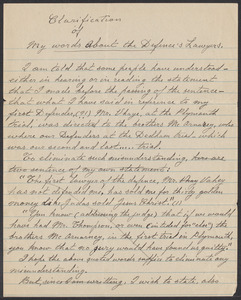 Clarification
of
My words about the Defense's Lawyers.
I am told that some people have understood -
either in hearing or in reading the statement
that I made before the passing of the sentence -
that what I have said in reference to my
first Defender (91) Mr. Vahey, at the Plymouth
trial, was directed to the brother Mc Arnarney, who
where our Defenders at the Dedham trial. which was
our second and last trial.
To eliminate such misunderstanding, here are
two sentence of my own statement:
"The first Lawyer of the defence, Mr. Vahey
has not defended me, has sold me for thirty golden
money like Judas sold Jesus Christ."
"You know (addressing the judge) that if we would
have had Mr. Thompson, or even the
brothers Mc Arnarney, in the first trial in Plymouth,
you know that no jury would have found us guilty."
I hope the above quoted words suffice to eliminate any
misunderstanding.
But, since I am writing, I wish to state, also